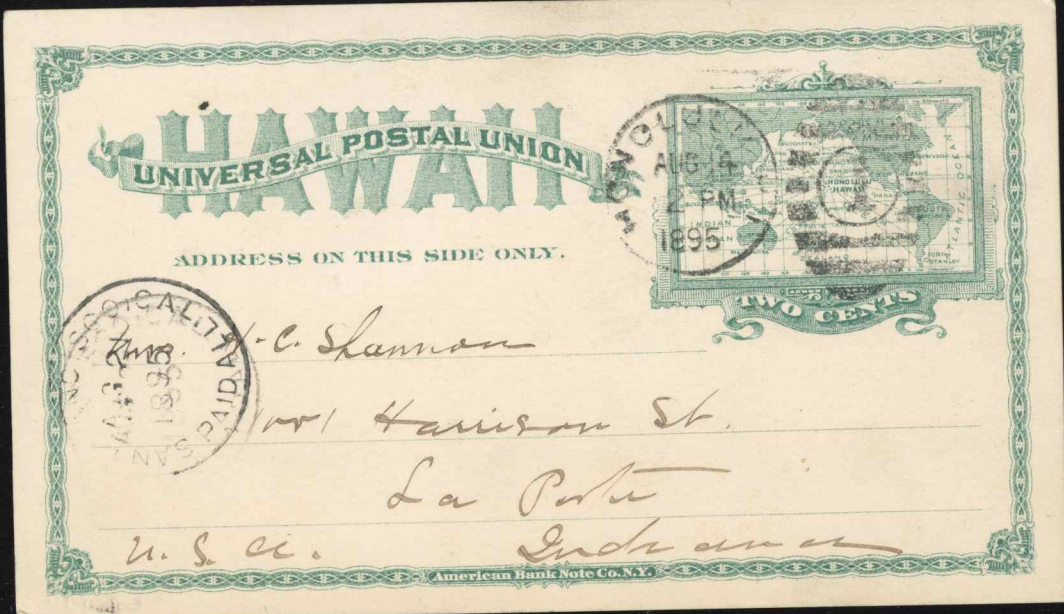 HAWAII
UNIVERSAL POSTAL UNION
ADDRESS ON THIS SIDE ONLY.
HONOLULU
AUG 14
2 PM
1895
HONOLULU
HAWAII
INDIAN
ATLANTIC OCEAN
TWO CENTS
SAN FRANCISCO, CAL.
PAID
1895
C. Shannon
1001 Harrison St.
La Porte
U. S. A. Indiana
American Bank Note Co. N.Y.